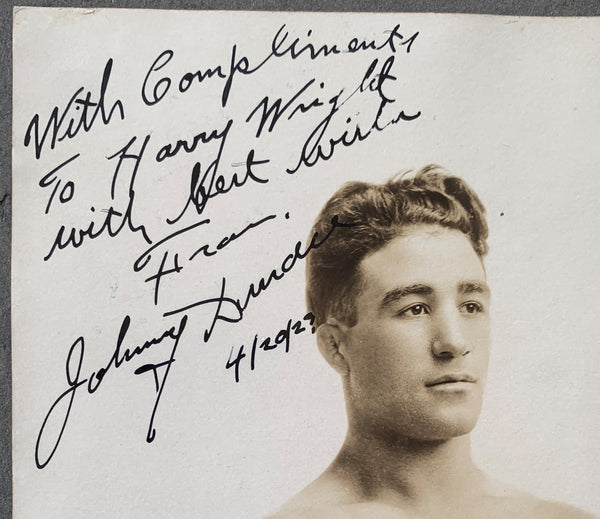 With Compliments
To Harry Wright
with best wishes
From
Johnny Dundee
4/20/23